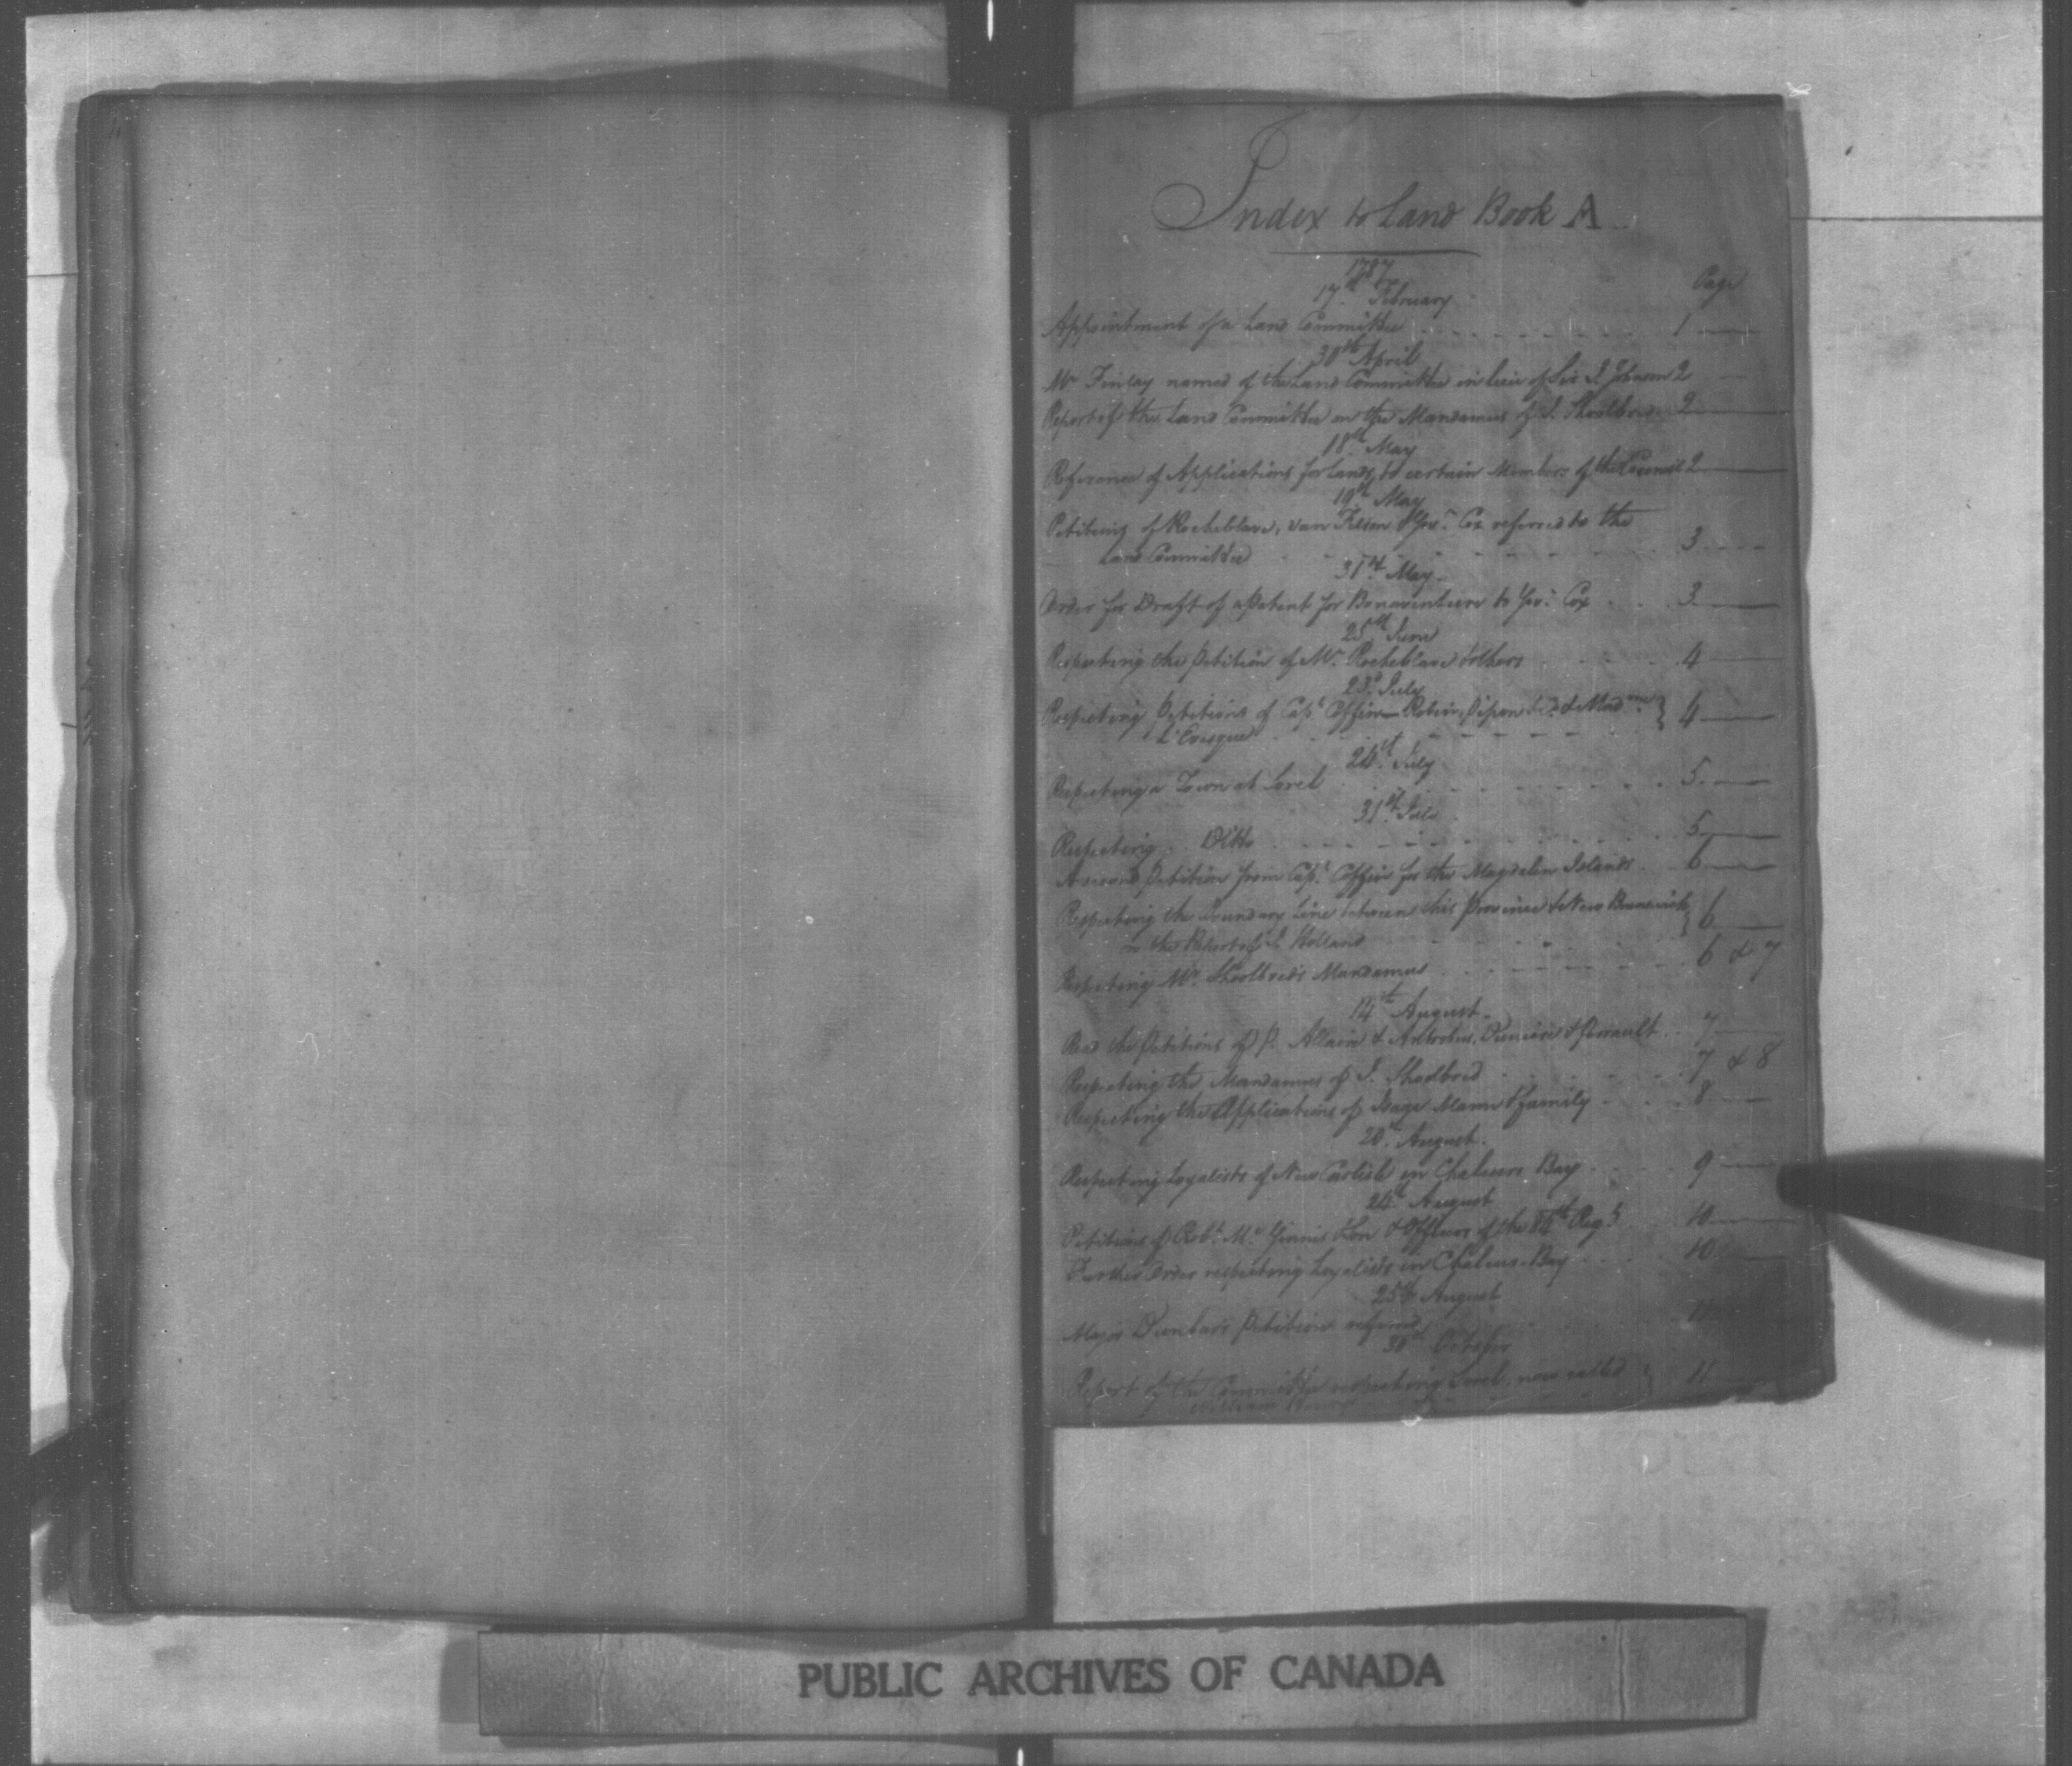 Index to Land Book A
1787
17th February
Page
Appointment of a Land Committee 1
30th April
Mr Finlay named of the Land Committee in lieu of Sir J. Johnson 2
Report of the Land Committee on the Mandamus of J. Shoolbred 2
18th May
Reference of Applications for Lands to certain Members of the Council 2
19th May
Petitions of Rocheblave, van Felson & Govr Cox referred to the
Land Committee 3
31st May
Order for Draft of a Patent for Bonaventure to Govr Cox 3
25th June
Respecting the Petition of Mr Rocheblave & others 4
23d July
Respecting Petitions of Capt Coffin Robin, Pipon & Co & Madme 4
L'Evesque
24th July
Respecting a Town at Sorel 5
31st July
Respecting Ditto 5
A second Petition from Capt Coffin for the Magdalen Islands 6
Respecting the Boundary Line between this Province & New Brunswick 6
& the Report of S. Holland
Respecting Mr Shoolbred's Mandamus 6 & 7
14th August
Read the Petitions of P. Allaire & Antrobus, Dunière & Perrault 7
Respecting the Mandamus of J. Shoolbred 7 & 8
Respecting the Applications of Isaac Mann & family 8
20th August
Respecting Loyalists of New Carlisle in Chaleurs Bay 9
24th August
Petitions of Robt Mc Ginnis & Officers of the 84th Regt 10
Further Order respecting Loyalists in Chaleurs Bay 10
25th August
Major Dunbar's Petition referred 11
30th October
Report of the Committee respecting Sorel, now called 11
William Henry
PUBLIC ARCHIVES OF CANADA